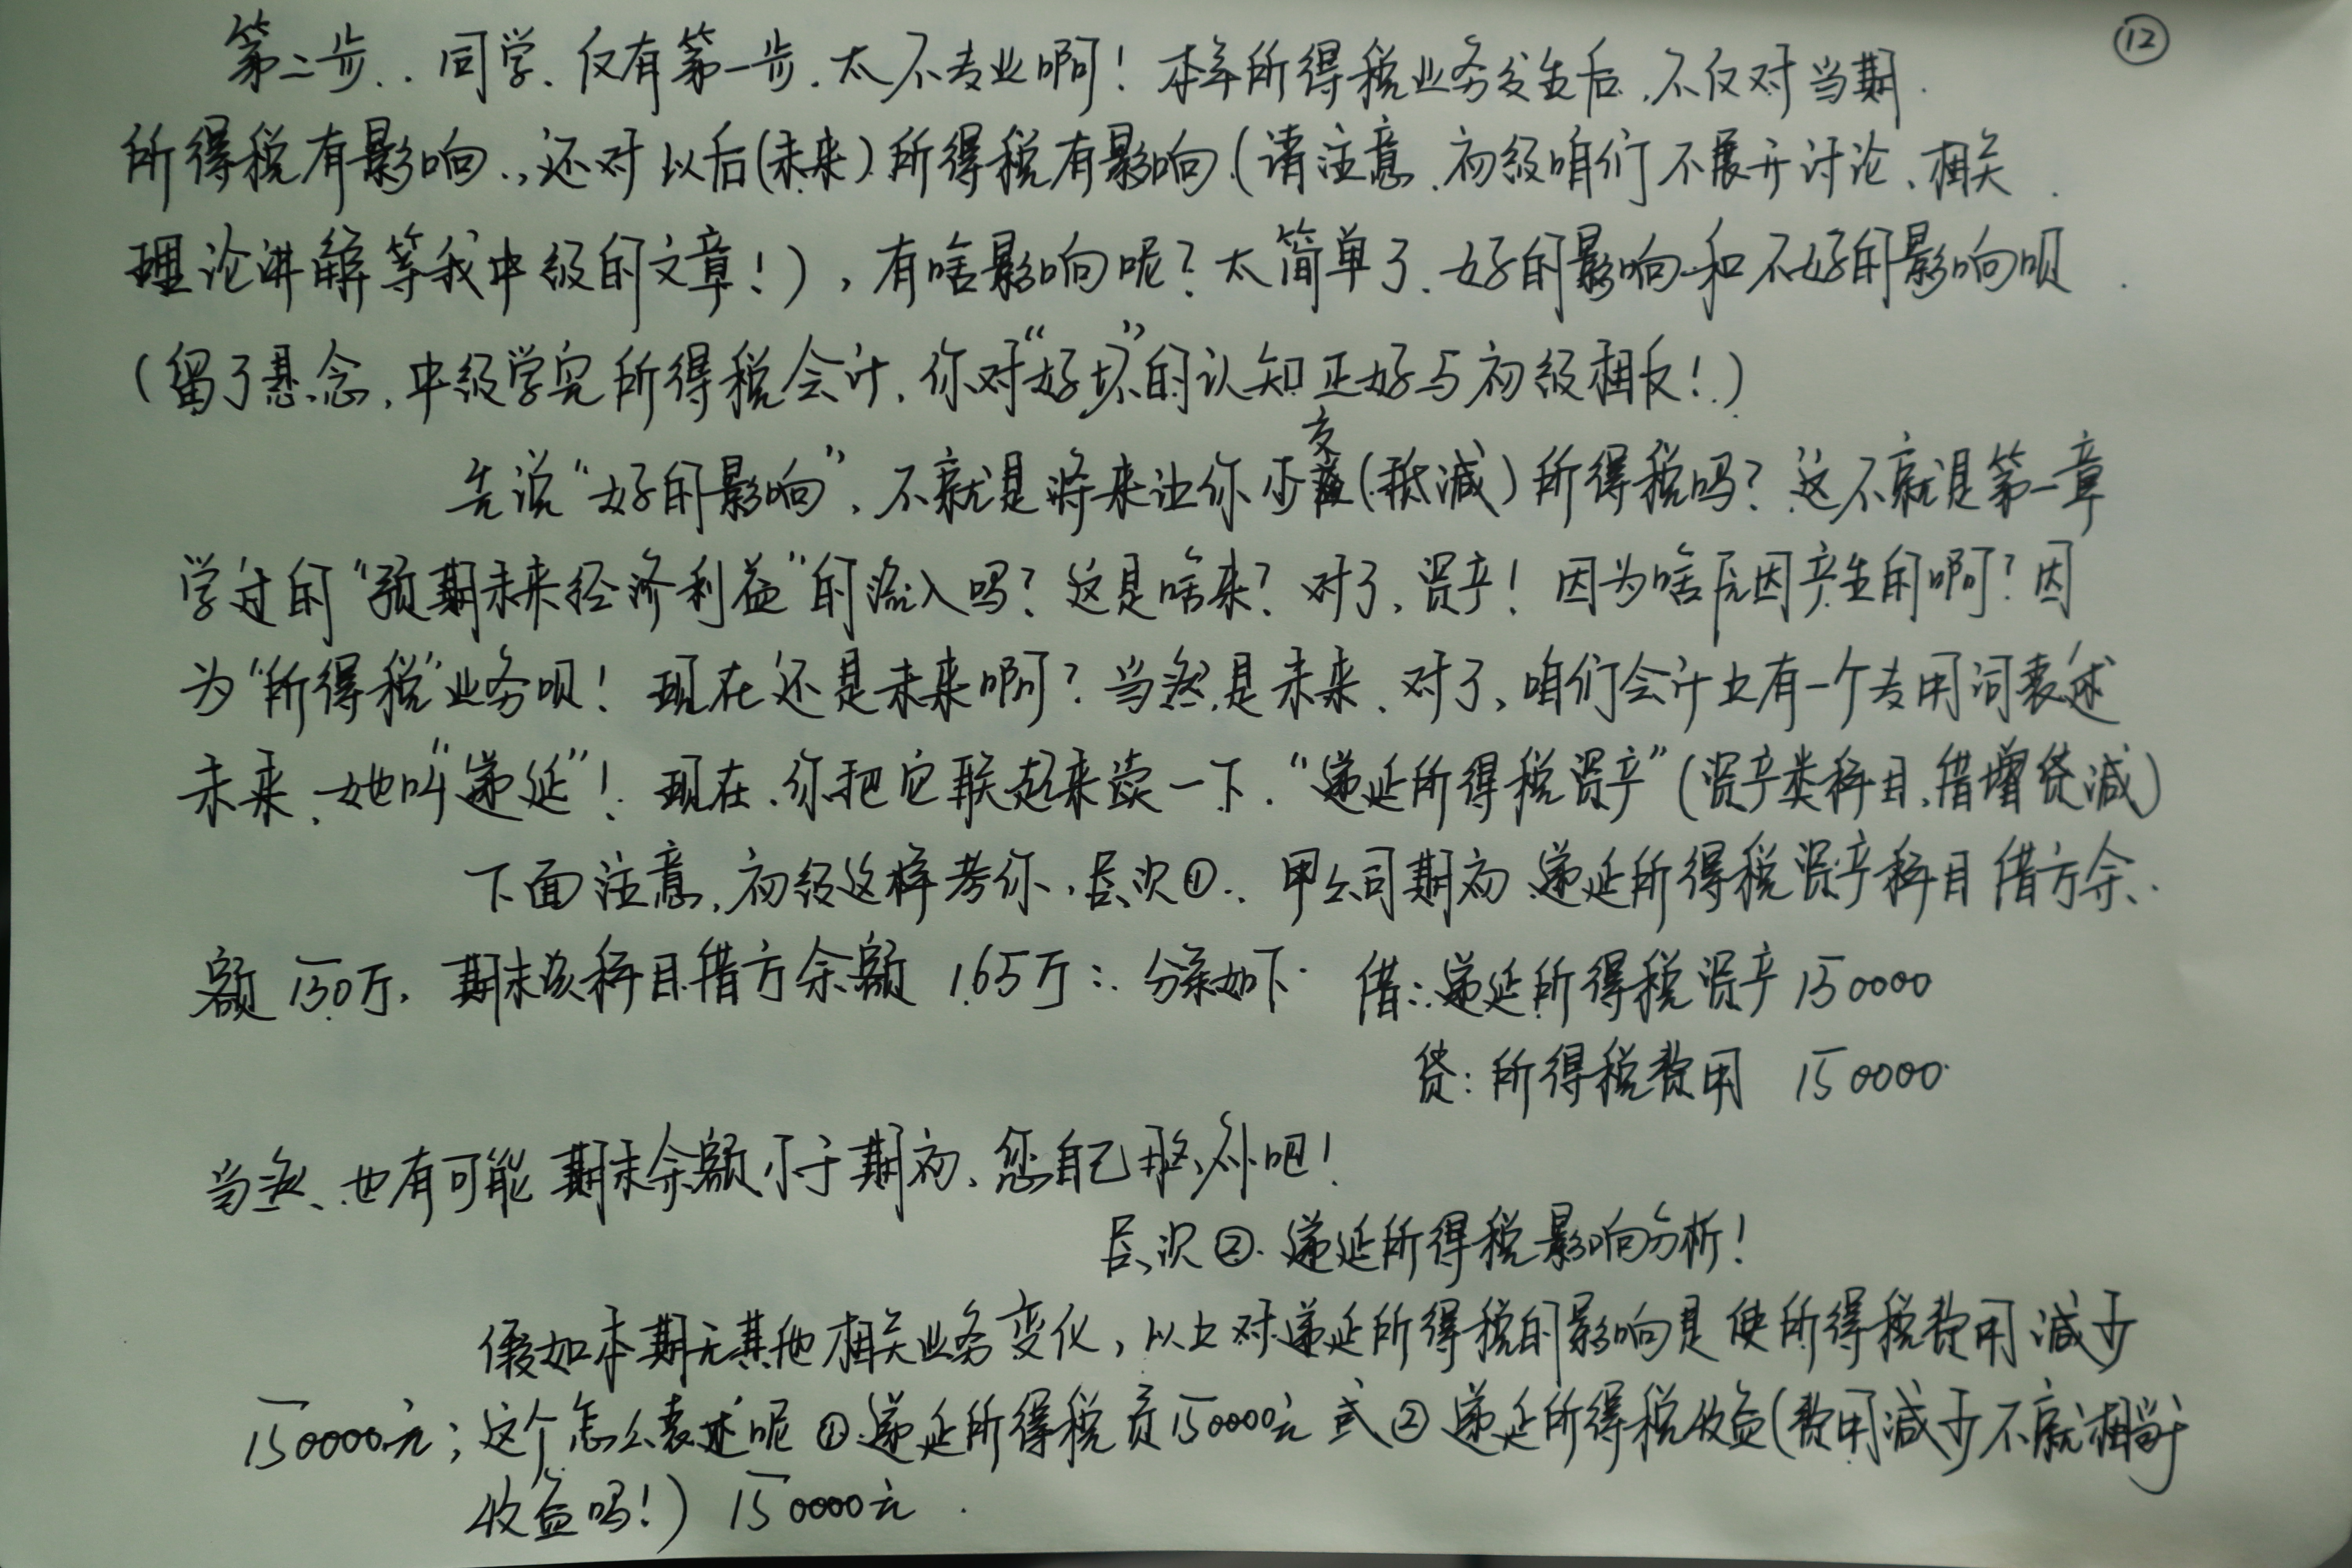 ⑫
第二步..同学.仅有第一步.太不专业啊!本年所得税业务发生后,不仅对当期.
所得税有影响.,还对以后(未来)所得税有影响(请注意.初级咱们不展开讨论、相关.
理论讲解等我中级的文章!),有啥影响呢?太简单了.好的影响和不好的影响呗.
(留了悬念,中级学完所得税会计,你对“好坏”的认知正好与初级相反!)
先说“好的影响”,不就是将来让你少交(抵减)所得税吗?这不就是第一章
学过的“预期未来经济利益”的流入吗?这是啥来?对了,资产!因为啥原因产生的啊?因
为“所得税”业务呗!现在还是未来啊?当然是未来.对了,咱们会计上有一个专用词表述
未来,她叫“递延”!现在.你把它联起来读一下.“递延所得税资产”(资产类科目,借增贷减)
下面注意,初级这样考你,层次①.甲公司期初递延所得税资产科目借方余
额150万.期末该科目借方余额165万:分录如下.借:递延所得税资产150000
贷:所得税费用 150000
当然、也有可能期末余额小于期初,您自己 吧!
层次②.递延所得税影响分析!
假如本期无其他相关业务变化,以上对递延所得税的影响是使所得税费用减少
150000元;这个怎么表述呢①递延所得税负150000元或②递延所得税收益(费用减少不就相当于
收益吗!)150000元.